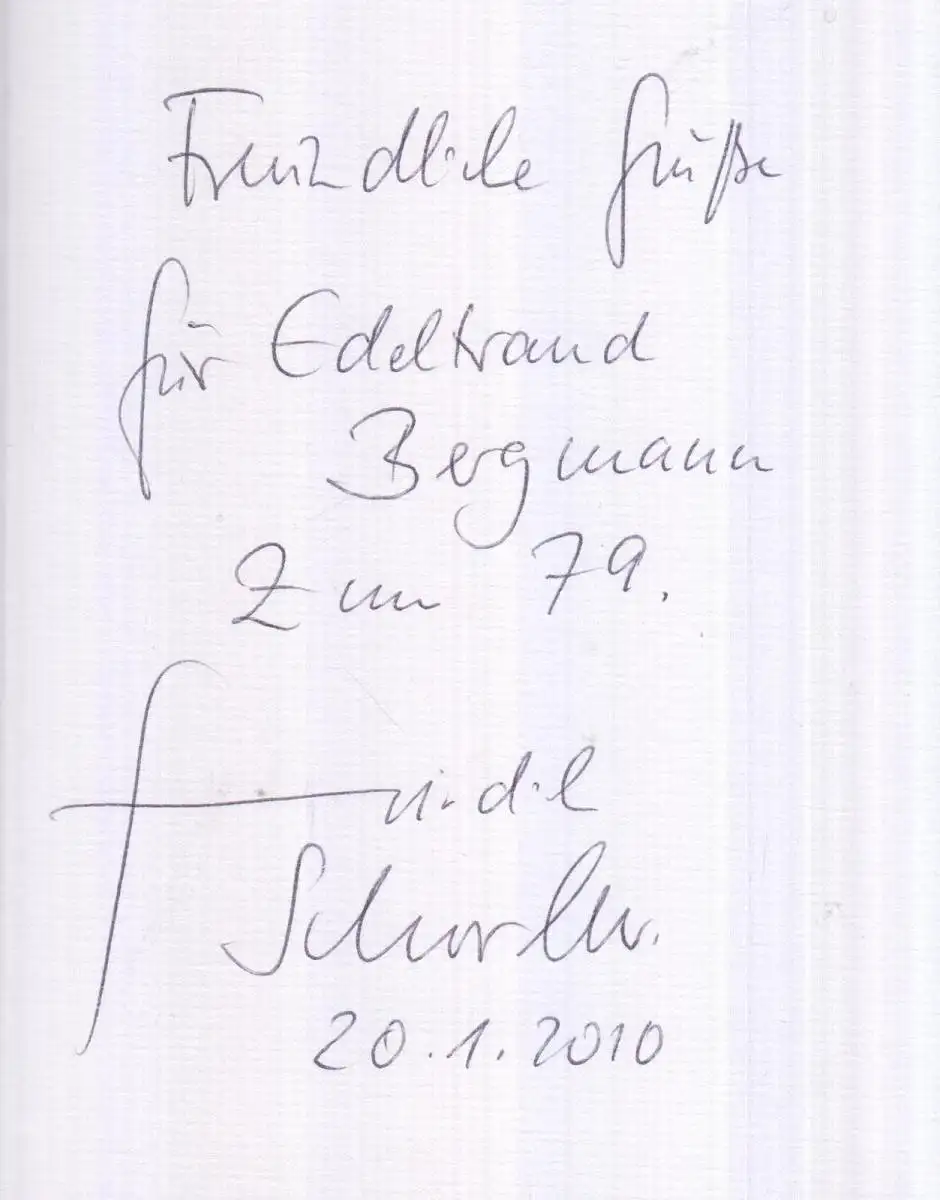 Freundliche Grüße
für Edeltraud
Bergmann
Zum 79.
Friedel
Schorlem.
20.1.2010